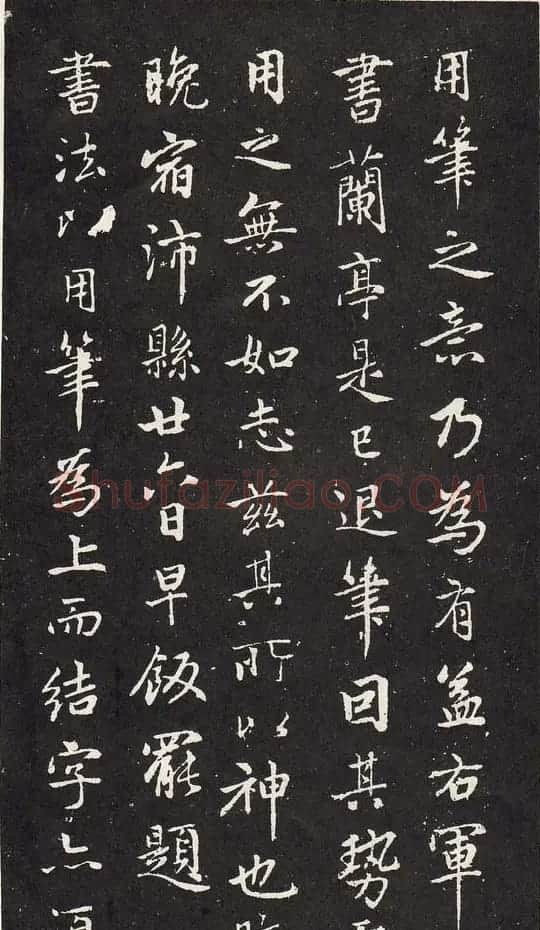 用筆之意乃為有益右軍
書蘭亭是已退筆因其勢
用之無不如志茲其所以神也
晚宿沛縣廿六日早飯罷題
書法以用筆為上而結字亦
shufaziliao.COM